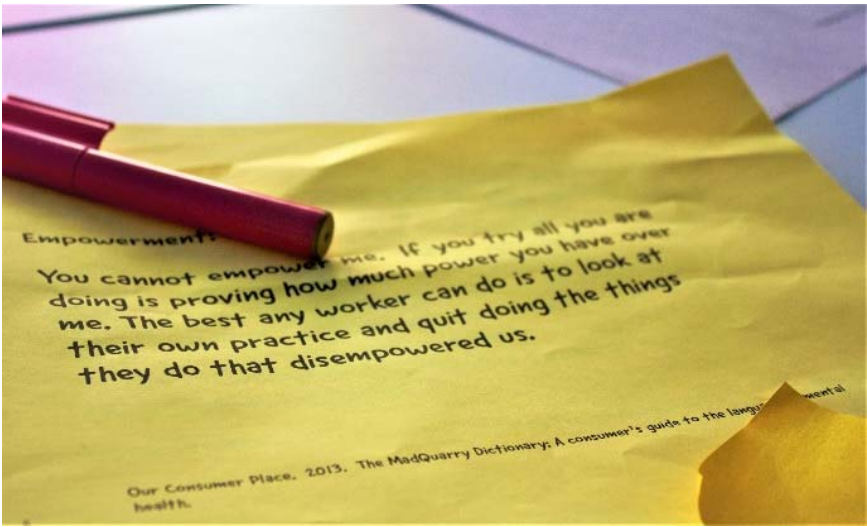 Empowerment:
You cannot empower me. If you try all you are
doing is proving how much power you have over
me. The best any worker can do is to look at
their own practice and quit doing the things
they do that disempowered us.
Our Consumer Place. 2013. The MadQuarry Dictionary: A consumer's guide to the mental
health.